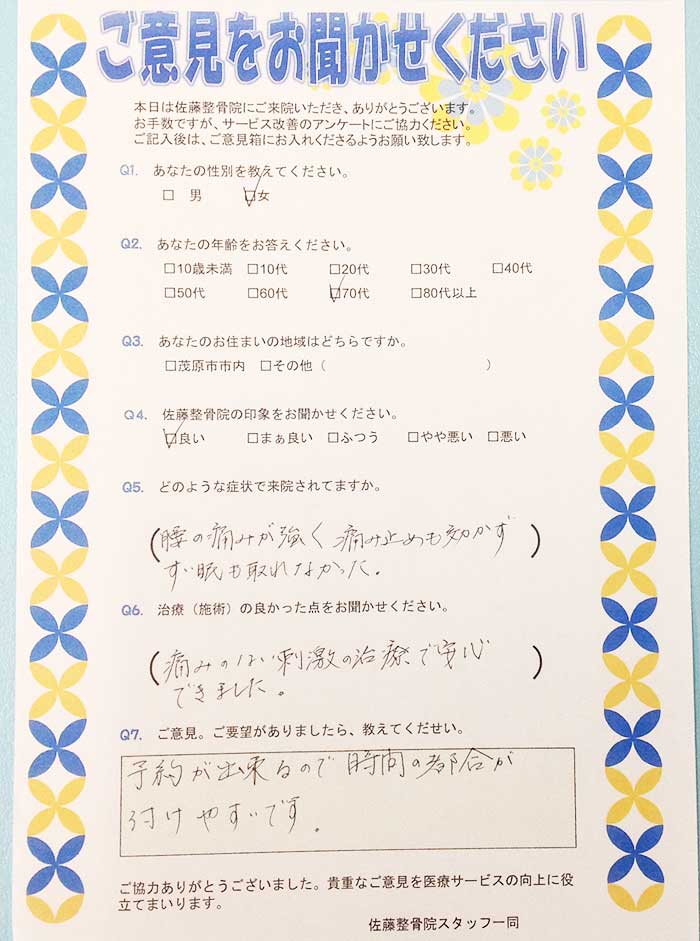 ご意見をお聞かせください
本日は佐藤整骨院にご来院いただき、ありがとうございます。
お手数ですが、サービス改善のアンケートにご協力ください。
ご記入後は、ご意見箱にお入れくださるようお願い致します。
Q1. あなたの性別を教えてください。
□ 男 ☑女
Q2. あなたの年齢をお答えください。
□10歳未満 □10代 □20代 □30代 □40代
□50代 □60代 ☑70代 □80代以上
Q3. あなたのお住まいの地域はどちらですか。
□茂原市市内 □その他（ ）
Q4. 佐藤整骨院の印象をお聞かせください。
☑良い □まぁ良い □ふつう □やや悪い □悪い
Q5. どのような症状で来院されてますか。
(腰の痛みが強く 痛み止めも効かず)
眠も取れなかった.
Q6. 治療（施術）の良かった点をお聞かせください。
(痛みのない刺激の治療で安心)
できました。
Q7. ご意見。ご要望がありましたら、教えてくだせい。
予約が出来るので時間の都合が
付けやすいです.
ご協力ありがとうございました。貴重なご意見を医療サービスの向上に役
立てまいります。
佐藤整骨院スタッフ一同